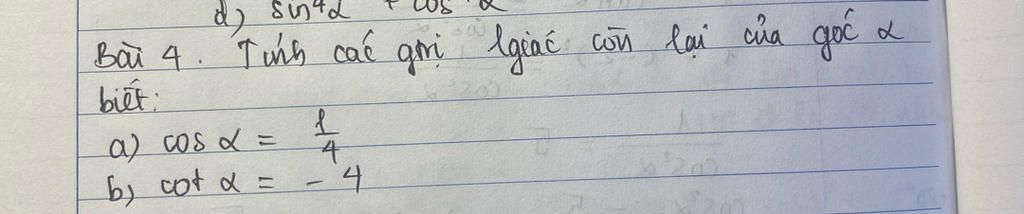 d) sin⁴α + cos α
Bài 4. Tính các gtrị lgiác còn lại của góc α
biết:
a) cos α = 1/4
b) cot α = - 4